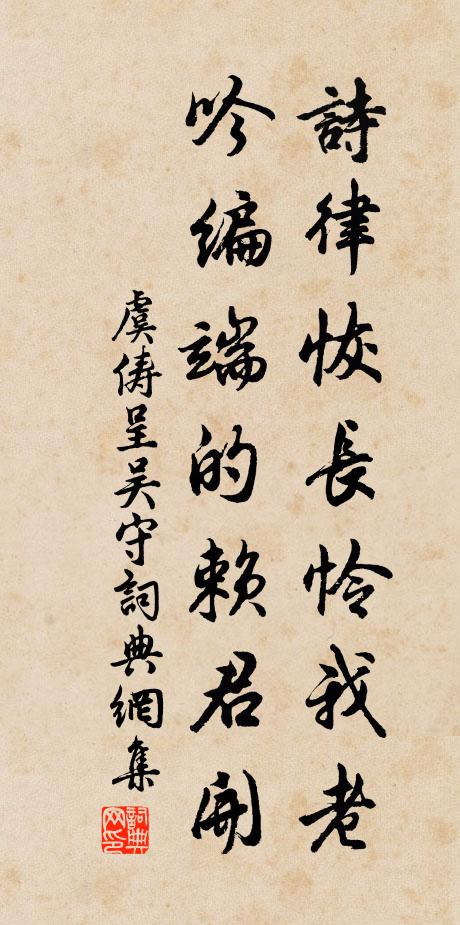 詩律恢長怜我老
吟編端的賴君開
虞儔呈吴守詞典網集
詞典网印